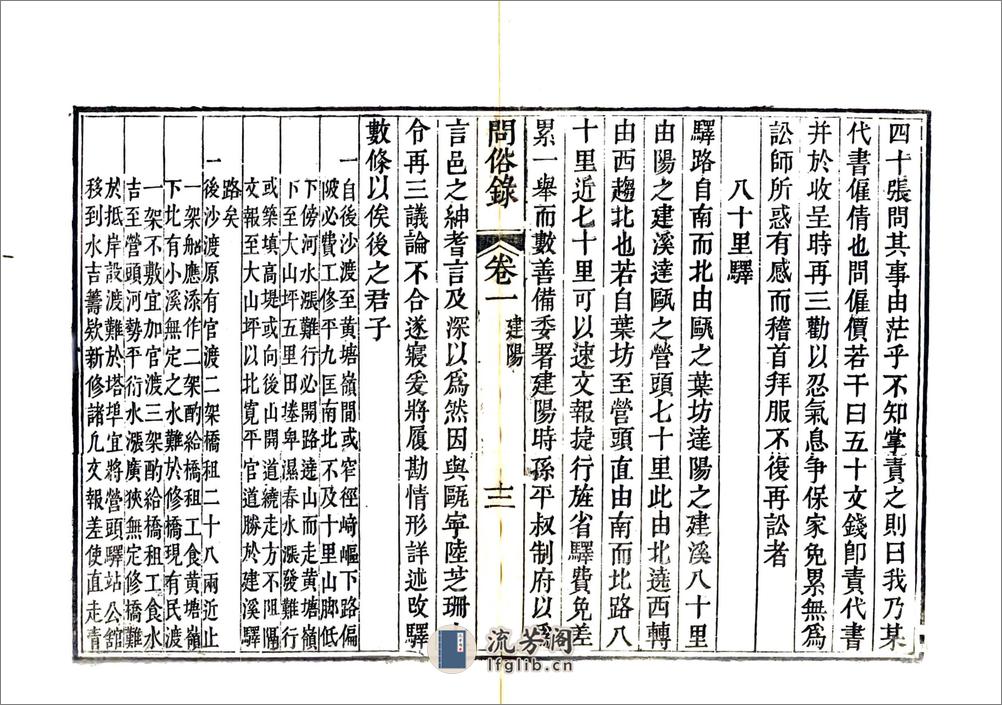 四十張問其事由茫乎不知掌責之則曰我乃某
代書僱倩也問僱價若干曰五十文錢卽責代書
并於收呈時再三勸以忍氣息争保家免累無爲
訟師所惑有感而稽首拜服不復再訟者
八十里驛
驛路自南而北由甌之葉坊達陽之建溪八十里
由陽之建溪達甌之營頭七十里此由北遶西轉
由西趨北也若自葉坊至營頭直由南而北路八
十里近七十里可以速文報捷行旌省驛費免差
累一舉而數善備委署建陽時孫平叔制府以爲
問俗錄 卷一 建陽 十二
言邑之紳耆言及深以爲然因與甌寧陸芝珊
令再三議論不合遂寢爰將履勘情形詳述改驛
數條以俟後之君子
一自後沙渡至黄塘嶺間或窄徑﨑嶇下路偏
陂必費工修平九匡南北不及十里山脚低
下傍河水漲難行必開路遶山而走黄塘嶺
下至大山坪五里田塍卑濕春水漲發難行
或築填高堤或向後山開道繞走方不阻隔
文報至大山坪以北寛平官道勝於建溪驛
路矣
一後沙渡原有官渡二架橋租二十八兩近止
一架觔應添作二架酌給橋租工食黄塘嶺
下北有小溪無定之水難於修橋現有民渡
一架不敷宜加官渡三架酌給橋租工食水
吉至營頭河勢平衍水漲廣狹無定修橋難
於抵岸設渡難於塔埠宜將營頭驛站公舘
移到水吉籌欵新修諸凡文報差使直走青
流芳阁
lfglib.cn